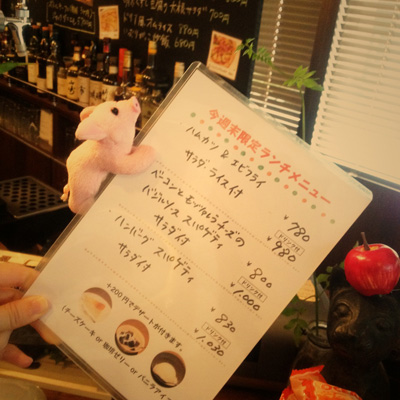 豆腐と大根サダ 700円
オムライス 880円
680円
今週末限定ランチメニュー
ハムカツ & エビフライ
サラダ・ライス付
¥780
ドリンク付
980
ベーコンとモッツァレラチーズの
バジルソーススパゲティ
サラダ付
¥800
ドリンク付
¥1,000
ハンバーグスパゲティ
サラダ付
¥830
ドリンク付
¥1,030
+200円でデザートが付きます。
(チーズケーキ or 珈琲ゼリー or バニラアイス